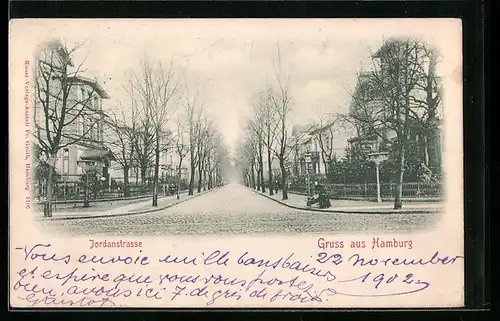 Kunst-Verlags-Anstalt Fr. Groth, Hamburg
Jordanstrasse
Gruss aus Hamburg
Vous envoie mille bonsbaisers 22 november
et espère que vous vous portez 1902
bien, avons ici 7 degrés de froid